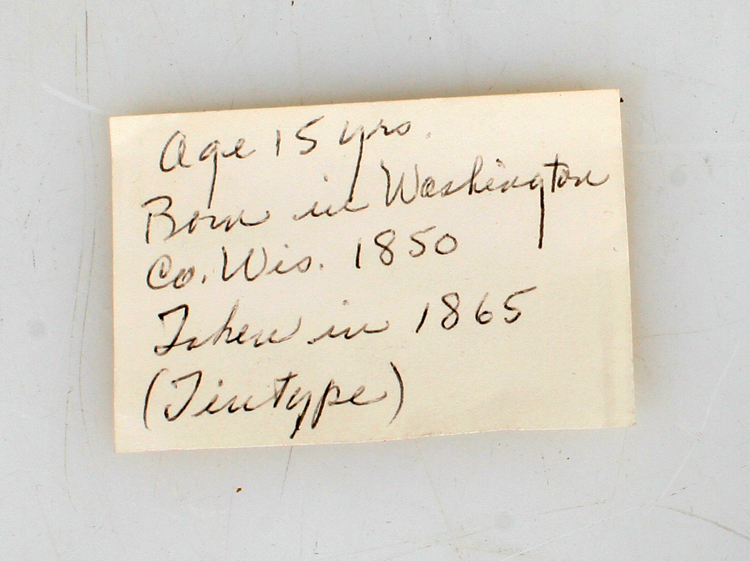 Age 15 yrs.
Born in Washington
Co. Wis. 1850
Taken in 1865
(Tintype)